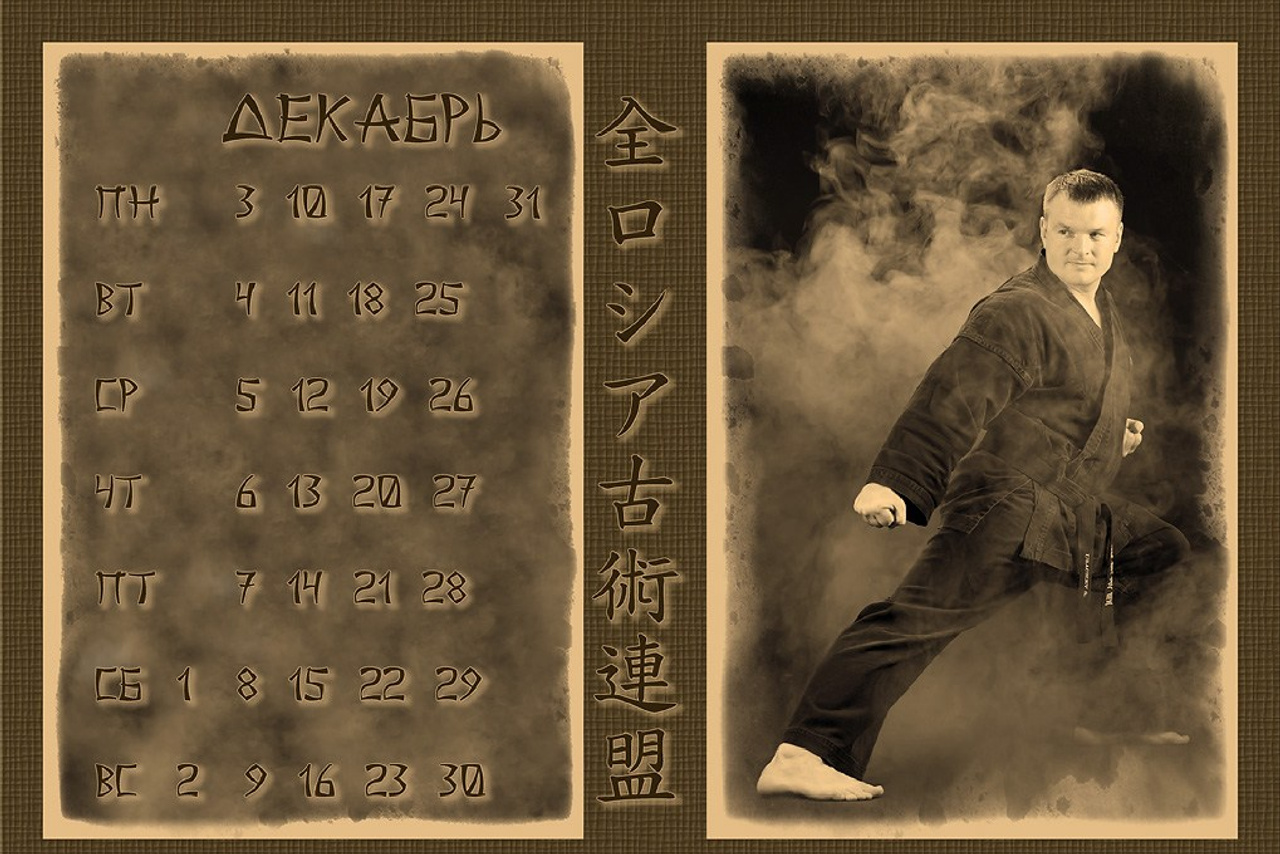 ДЕКАБРЬ
ПН 3 10 17 24 31
ВТ 4 11 18 25
СР 5 12 19 26
ЧТ 6 13 20 27
ПТ 7 14 21 28
СБ 1 8 15 22 29
ВС 2 9 16 23 30
全ロシア古術連盟